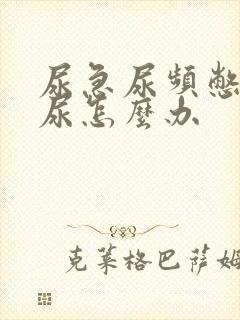 尿急尿頻憋
尿怎麼办
克莱格巴萨姆